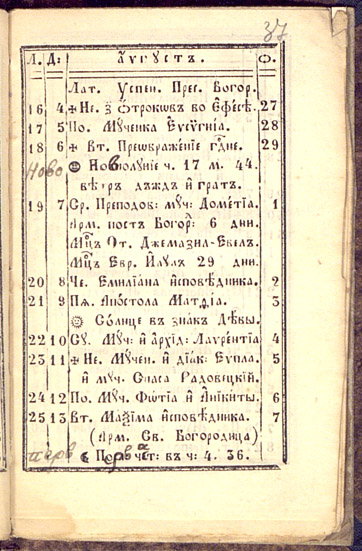 37
Л. Д: АѴГѴСТЪ. Ф.
Лат. Успен. Прес. Богор.
16 4 ✠ Не. ѯ҃ ѿтрокѡвъ во Ефесѣ. 27
17 5 По. Мꙋченика Еѵсигнїа. 28
18 6 ✠ Вт. Преѡбраженїе гдⷭ҇не. 29
Ново Новолꙋнїе ч. 17 м. 44.
вѣтръ дъждъ и гратъ.
19 7 Ср. Преподов: мꙋч: Дометїа. 1
Арм. постъ Богор: 6 дни.
Мцъ От. Джемазил-Евел.
Мцъ Евр. Илꙋлъ 29 дни.
20 8 Че. Емилїана исповѣдника. 2
21 9 Пѧ. Апостола Матѳїа. 3
Солнце въ знакъ Дѣвы.
22 10 Сꙋ. Мꙋч: и архїд: Лаѵрентїа 4
23 11 ✠ Не. Мꙋчен. и дїак: Еѵпла. 5
и мꙋч. Спаса Радовецкїй.
24 12 По. Мꙋч. Фѡтїа и Аникиты. 6
25 13 Вт. Маѯима исповѣдника. 7
(Арм. Св. Богородица)
перв ☾ Перва чет: въ ч: 4. 36. 8